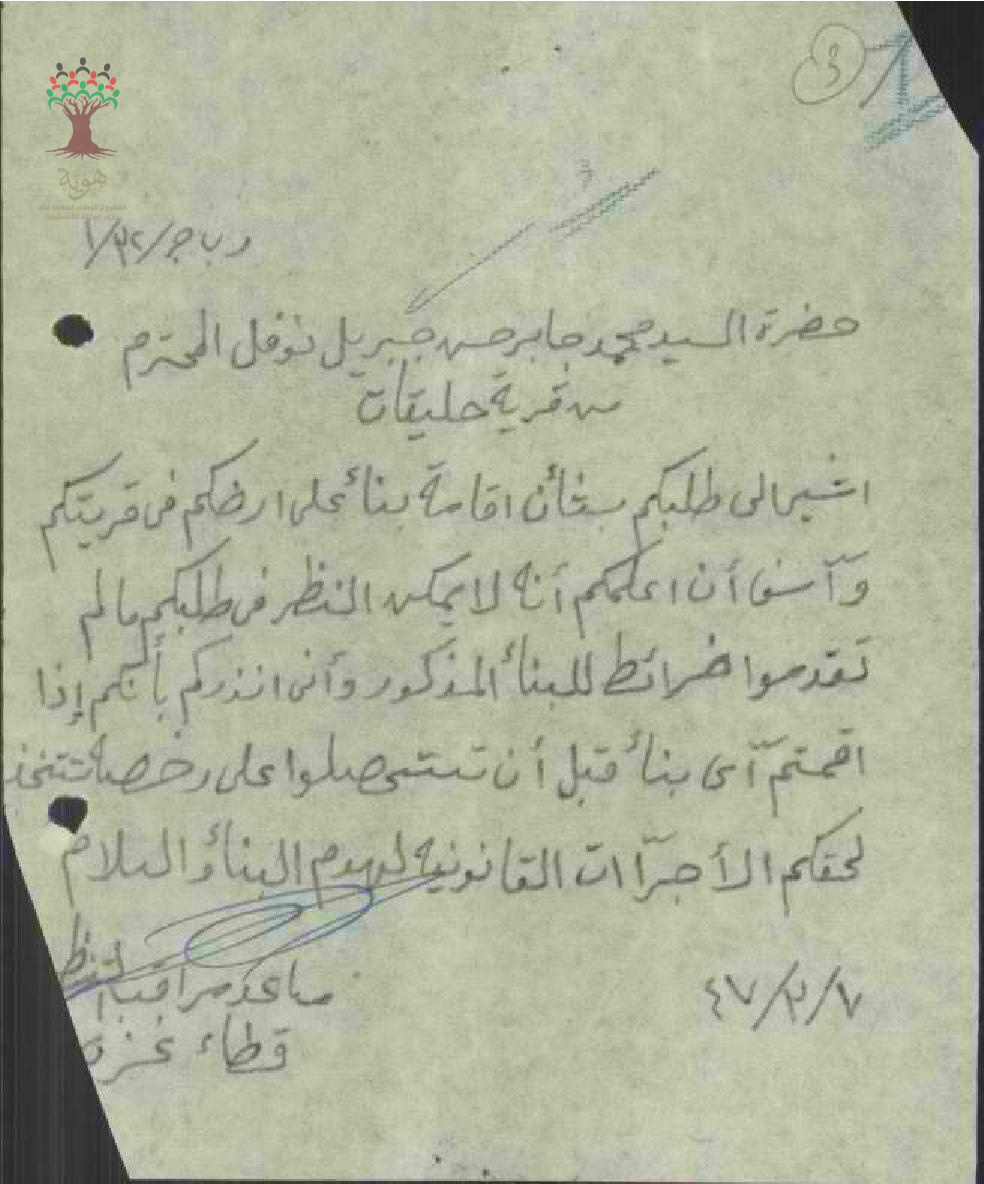 3
هوية
المشروع الوطني للحفاظ على
جذور العائلة الفلسطينية
حضرة السيد محمد جابر حسن جبريل نوفل المحترم
من قرية حليقات
اشير الى طلبكم بشأن اقامة بنأ على ارضكم فى قريتكم
وآسف أن اعلمكم أنه لا يمكن النظر فى طلبكم مالم
تقدموا خرائط للبنأ المذكور وأنى انذركم بأنكم إذا
اقمتم آى بنأ قبل أن تستحصلوا على رخصة تتخذ
لحقكم الأجرآات القانونية لهدم البنأ والسلام
مساعد مراقب
قطاء غزة
٤٧/٣/٧